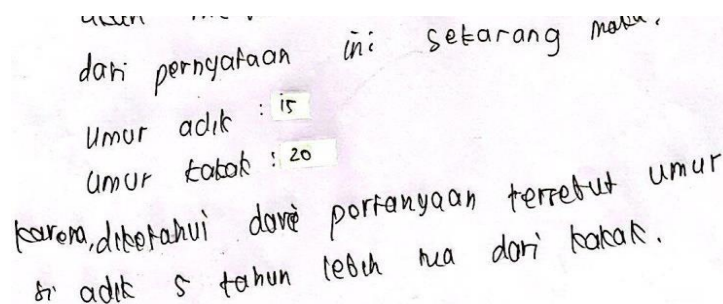 dari pernyataan ini sekarang maka.
umur adik : 15
umur kakak : 20
karena, diketahui dari pertanyaan tersebut umur
si adik 5 tahun lebih tua dari kakak.